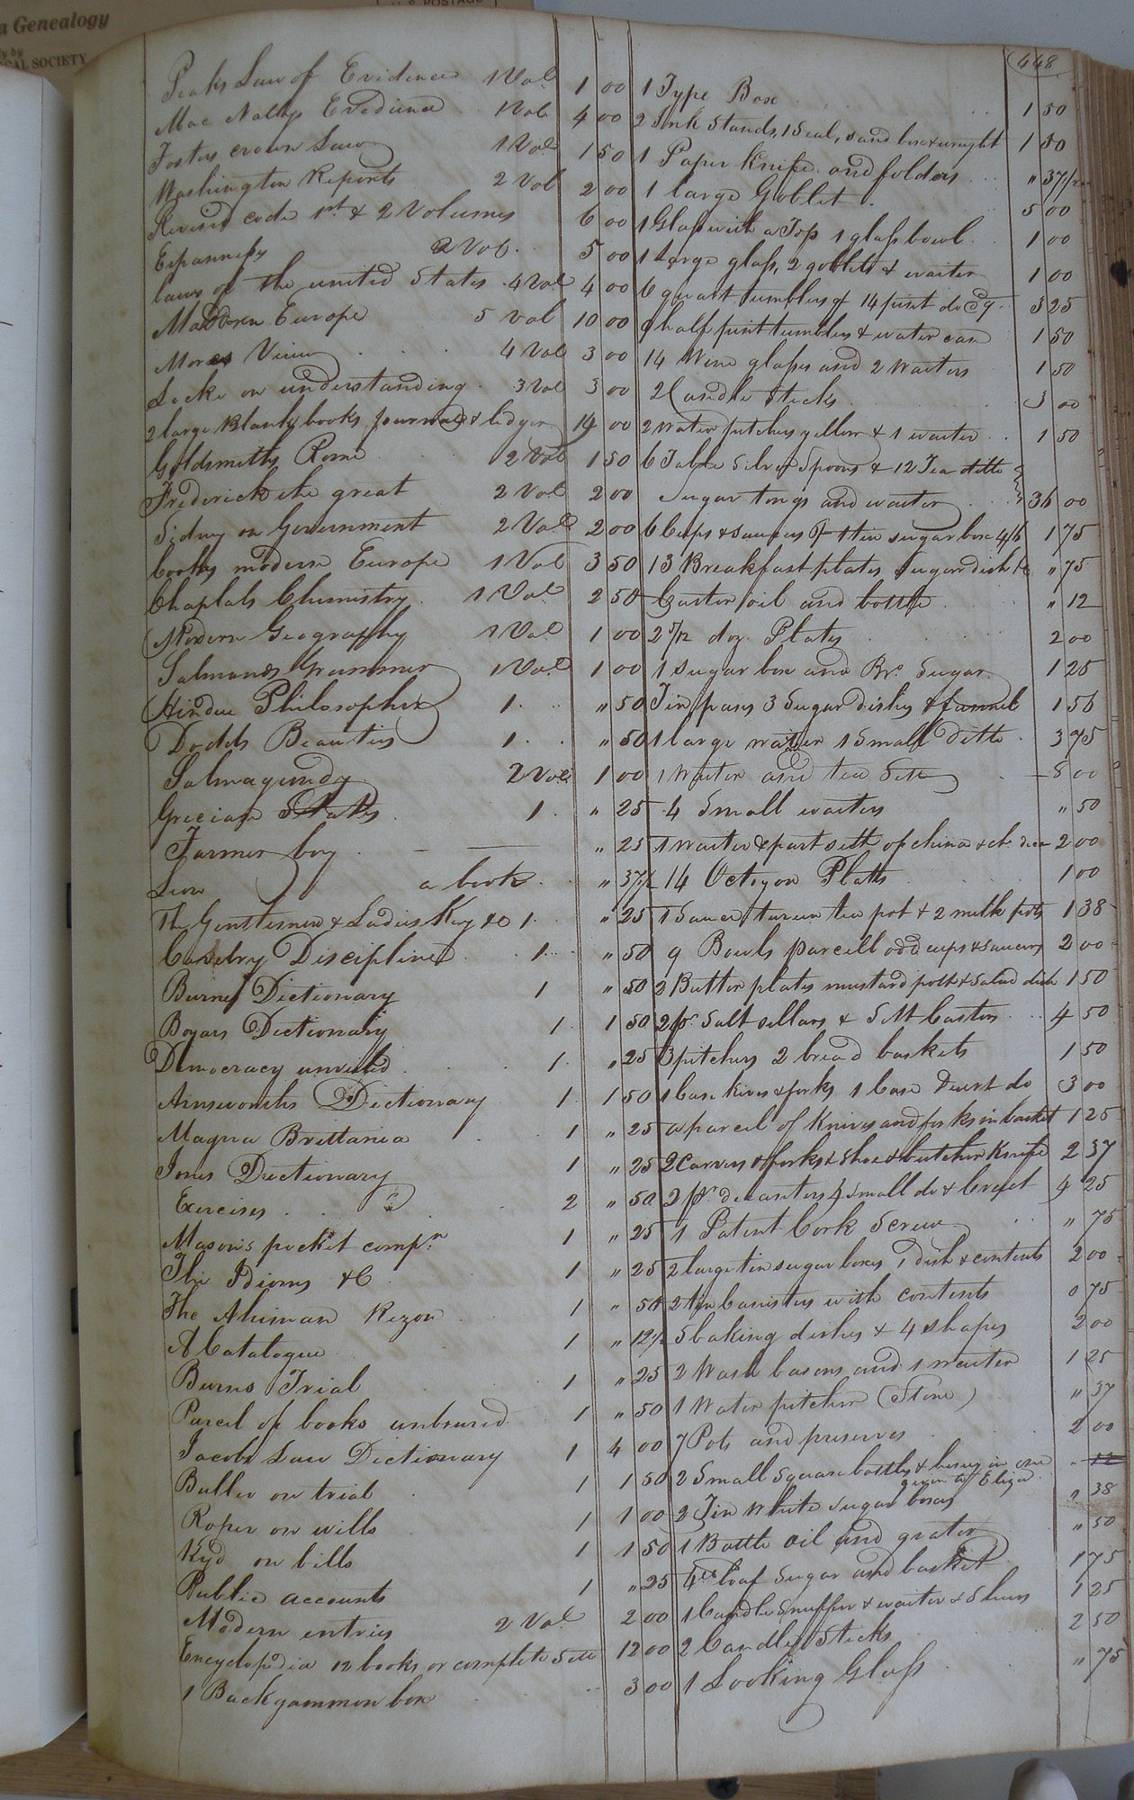 a Genealogy
SOCIETY
POSTAGE
448
Peaks Law of Evidence 1 Vol 1 00
Mac Nallys Evedience 1 Vol 4 00
Fosters crown Law 1 Vol 1 50
Washington Reports 2 Vol 2 00
Revised code 1st & 2 Volumes 6 00
2 Vol. 5 00
Laws of the united States 4 Vol 4 00
Modern Europe 5 Vol 10 00
Mores View 4 Vol 3 00
Locke on understanding 3 Vol 3 00
2 large Blank books Journal & ledger 14 00
Goldsmiths Rome 2 Vol 1 50
Frederick the great 2 Vol 2 00
Sidney on Government 2 Vol 2 00
Cooks modern Europe 1 Vol 3 50
Chaptals Chemistry 1 Vol 2 50
Modern Geography 1 Vol 1 00
Salmons Grammer 1 Vol 1 00
Hindue Philosopher 1 " 50
Dodds Beauties 1 " 50
Salmagundy 2 Vol 1 00
Grecian States 1 " 25
Farmer boy " 25
a book " 37 1/2
The Gentlemen & Ladies Key &c 1 " 25
Cavalry Discipline 1 " 50
Burns Dictionary 1 " 50
Boyars Dictionary 1 1 50
Democracy unveiled 1 " 25
Ainsworths Dictionary 1 1 50
Magna Brittania 1 " 25
Jones Dictionary 1 " 25
Exercises 2 " 50
Mason's pocket compn 1 " 25
The Idioms &C 1 " 25
The Ahiman Rezon 1 " 50
A Catalogue 1 " 12 1/2
Burrs Trial 1 " 25
Parcel of books unbound 1 " 50
Jacobs Law Dictionary 1 4 00
Buller on trial 1 1 50
Roper on wills 1 1 00
Kyd on bills 1 1 50
Public accounts 1 " 25
Modern entries 2 Vol 2 00
Encyclopedia 12 books or complete Sett 12 00
1 Backgammon box 3 00
1 Type Box 1 50
2 Ink Stands, 1 Seal, sand box & weight 1 50
1 Paper Knife and folders " 37 1/2
1 large Goblet 5 00
1 Glass with a Top 1 glass bowl 1 00
1 Large glass, 2 goblets & waiter 1 00
6 quart tumblers & 14 pint do 3 25
9 half pint tumblers & water can 1 50
14 Wine glasses and 2 Waiters 1 50
2 Candle Sticks 3 00
2 Water pitchers yellow & 1 waiter 1 50
6 Table Silver Spoons & 12 Tea ditto
Sugar tongs and waiter 36 00
6 Cups & saucers & tin sugar box 4/6 1 75
13 Breakfast plates Sugar dish &c " 75
Castor oil and bottle " 12
2 7/12 doz Plates 2 00
1 Sugar box and Br. Sugar 1 25
Tin pans 3 Sugar dishes & funnel 1 56
1 large waiter 1 Small Ditto 3 75
1 Waiter and tea Sett 5 00
4 Small waiters " 50
1 Waiter & part sett of china 2 00
14 Octogon Plates 1 00
1 Sauce tureen tea pot & 2 milk pots 1 38
9 Bowls parcell odd cups & saucers 2 00
2 Butter plates mustard pott & Salad dish 1 50
2 pr Salt sellars & Sett Castors 4 50
3 pitchers 2 bread baskets 1 50
1 Case knives & forks 1 Case Desert do 3 00
a parcel of Knives and forks in basket 1 25
2 Carvers & forks & Shoe & butcher Knife 2 37
2 pr decanters 4 Small do & Cruet 4 25
1 Patent Cork Screw " 75
2 large tin sugar boxes 1 dish & contents 2 00
2 tin Canisters with contents 0 75
5 baking dishes & 4 shapes 2 00
2 Wash basons and 1 waiter 1 25
1 Water pitcher (Stone) " 37
7 Pots and preserves 2 00
2 Small Square bottles & being in one given to Eliza 12
2 Tin White Sugar boxes " 38
1 Bottle oil and grater " 50
loaf Sugar and basket 1 75
1 Candle Snuffer & waiter 1 25
2 Candle Sticks 2 50
1 Looking Glass " 75